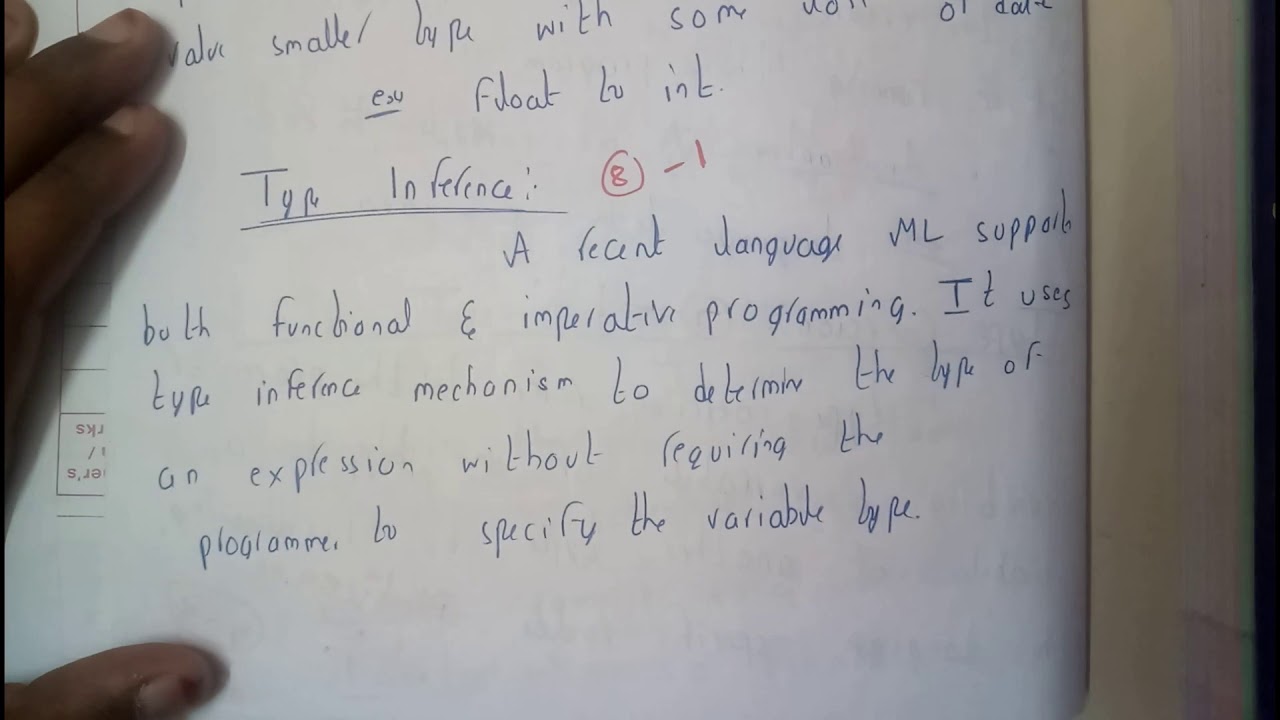 value smaller type with some of data
ex:- float to int.
Type Inference:- 8 - 1
A recent language ML supports
both functional & imperative programming. It uses
type inference mechanism to determine the type of
an expression without requiring the
programmer to specify the variable type.